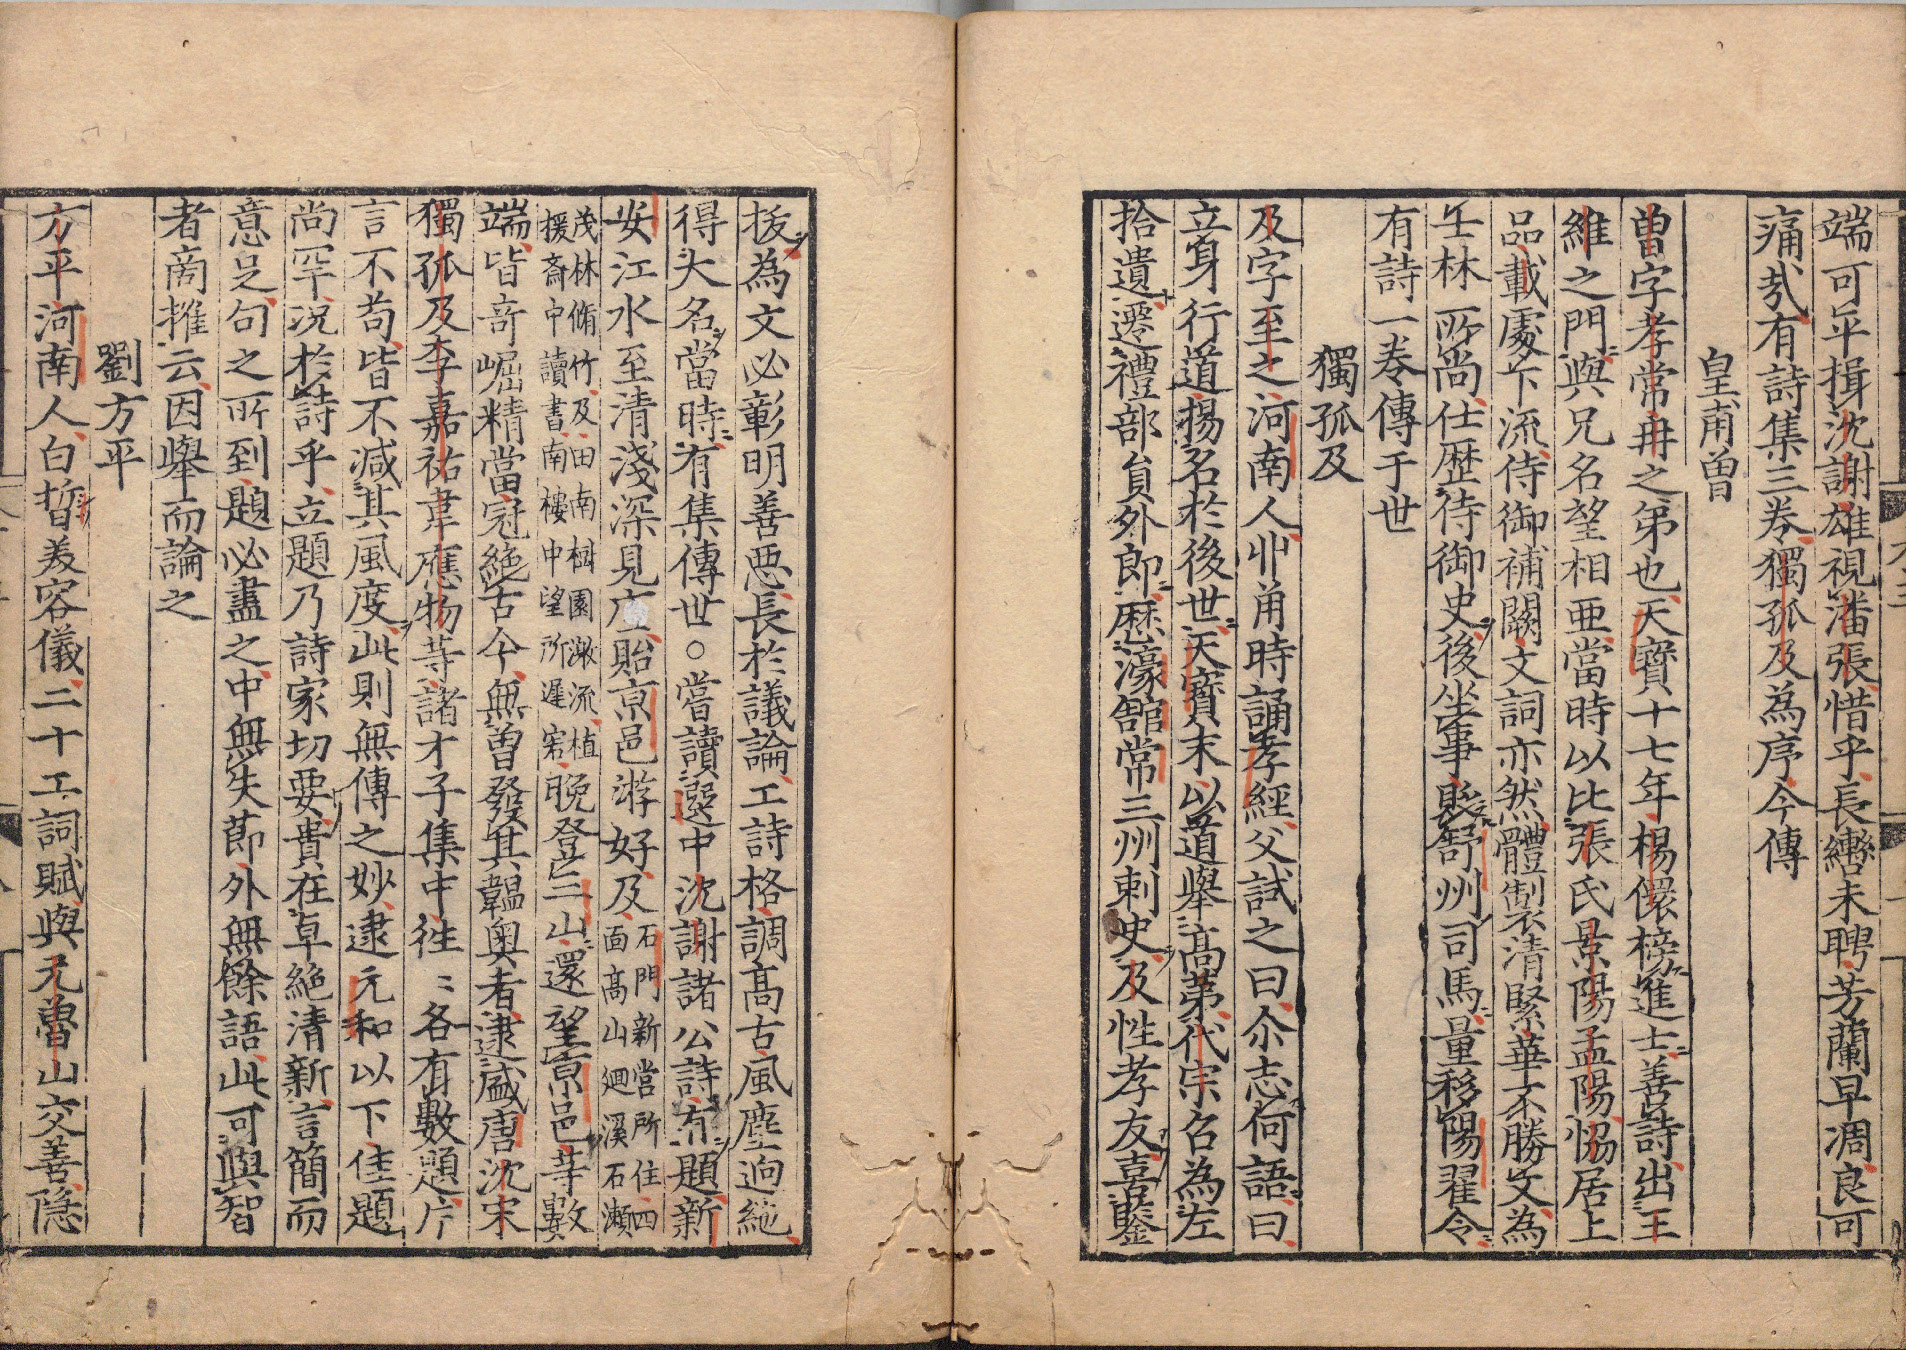 端可平揖沈謝雄視潘張惜乎長轡未騁芳蘭早凋良可
痛㢤有詩集三卷獨孤及為序今傳
皇甫曾
曾字孝常冉之弟也天寳十七年楊儇榜進士善詩出王
維之門與兄名望相亜當時以比張氏景陽孟陽恊居上
品載處下流侍御補闕文詞亦然體製清緊華不勝文為
士林所尚仕歴侍御史後坐事貶舒州司馬量移陽翟令
有詩一卷傳于世
獨孤及
及字至之河南人丱甬時誦孝經父試之曰尒志何語曰
立身行道揚名於後世天寳末以道舉高第代宗名為左
拾遺遷禮部員外郎歴濠舘常三州刺史及性孝友喜鑒
拔為文必彰明善惡長於議論工詩格調高古風塵逈絶
得大名當時有集傳世○嘗讀選中沈謝諸公詩有題新
安江水至清淺深見底貽京邑游好及石門新営所住四面高山迴溪石瀬
茂林脩竹及田南樹園激流植援斎中讀書南樓中望所遲客晩登三山還望京邑等數
端皆竒崛精當冠絶古今無曾發其韞奥者逮盛唐沈宋
獨孤及李嘉祐韋應物等諸才子集中徃〻各有數題片
言不苟皆不減其風度此則無傳之妙逮元和以下佳題
尚罕况於詩乎立題乃詩家切要貴在卓絶清新言簡而
意足句之所到題必盡之中無失莭外無餘語此可與智
者商搉云因舉而論之
劉方平
方平河南人白晳美容儀二十工詞賦與元魯山交善隠